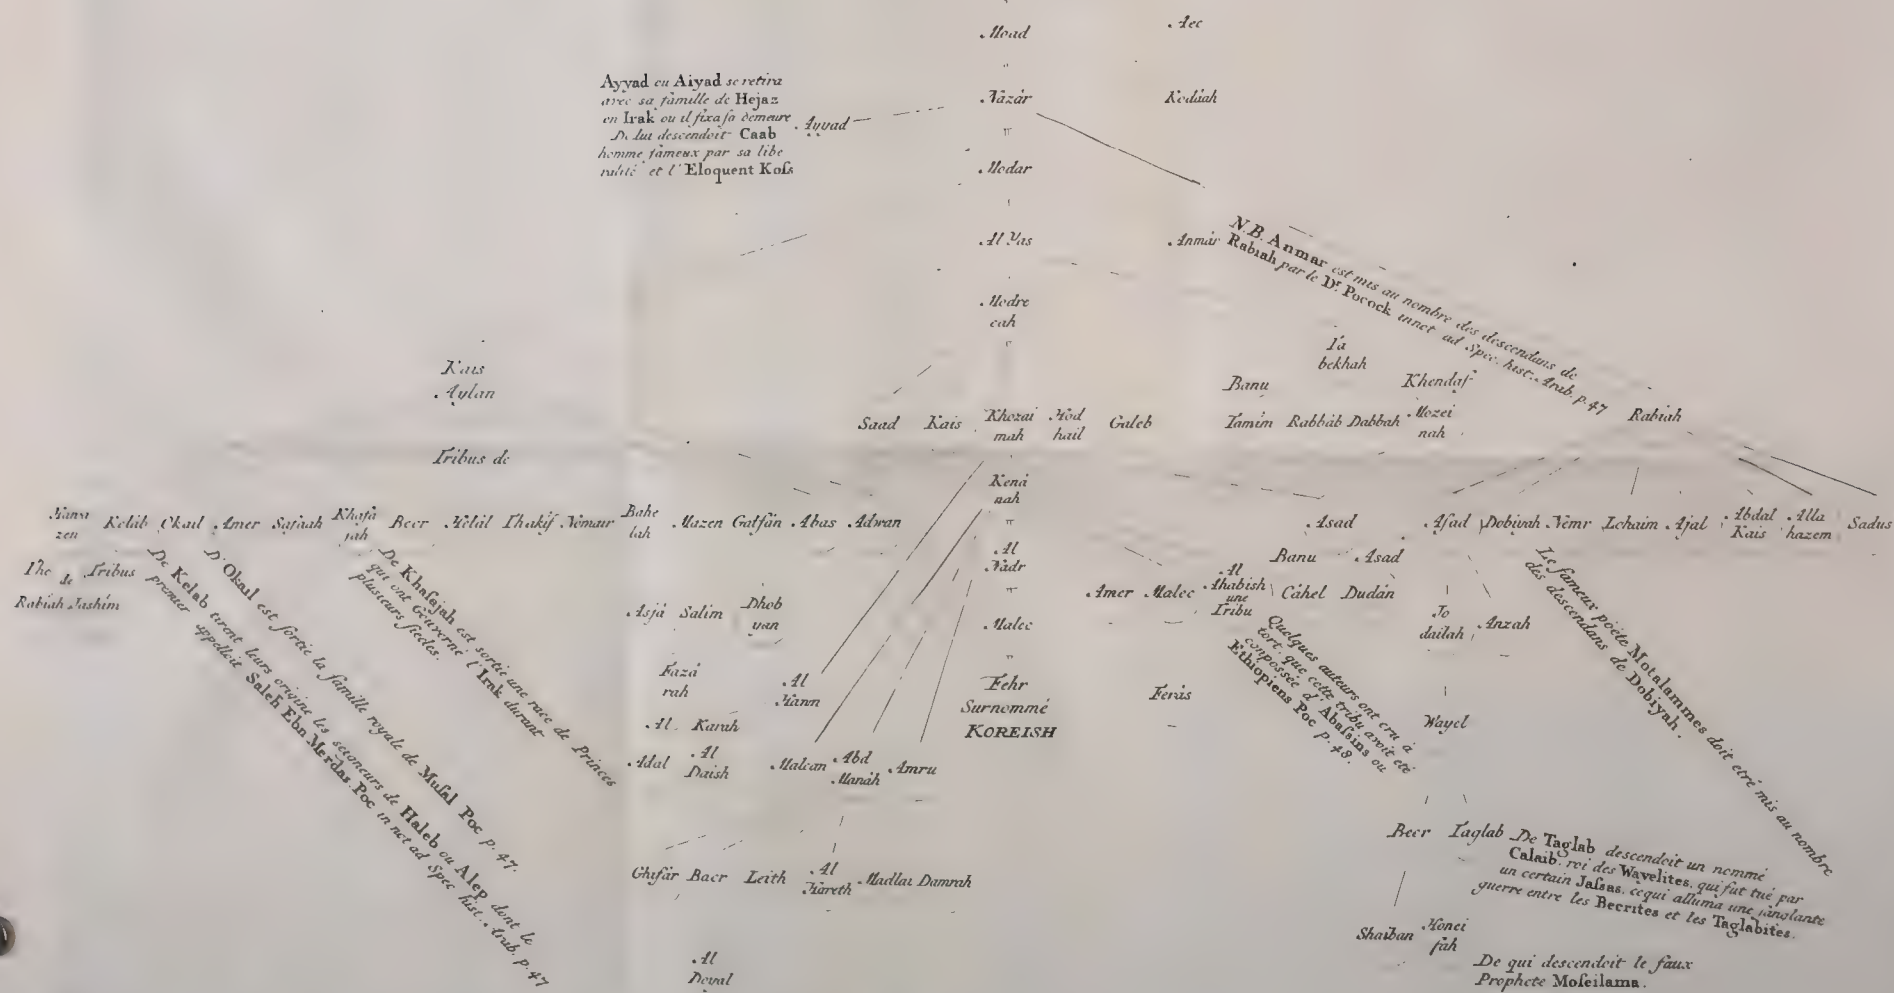 Moad
Aec
Ayyad ou Aiyad se retira
avec sa famille de Hejaz
en Irak ou il fixa sa demeure
De lui descendoit Caab
homme fameux par sa libe
ralité et l'Eloquent Koss
Ayyad
Nazár
Kodáah
Modar
Al Yas
Anmár
N.B. Anmar est mis au nombre des descendans de
Rabiah par le Dr. Pocock annot ad Spec. hist. Arab. p. 47
Modre
cah
Kais
Aylan
Ta
bekhah
Banu
Khendaf
Saad Kais Khozai
mah
Hod
hail
Galeb
Tamim Rabbáb Dabbah Mozei
nah
Rabiah
Tribus de
Kená
nah
Hawa
zen
Keláb Okail Amer Safaah Khafá
jah
Becr Helál Thakif Nomair Bahe
lah
Mazen Gatfán Abas Adwan
Asad
Asad Dobiyah Nemr Lohaim Ajal Abdal
Kais
Alla
hazem
Sadus
The de Tribus
Rabiah Jashim
De Kelab tirent leurs origine les seigneurs de Haleb ou Alep dont le
premier appelloit Saleh Ebn Merdas. Poc in not ad Spec hist. Arab. p. 47
D'Okail est sortie la famille royale de Musal Poc p. 47.
De Khafajah est sortie une race de Princes
qui ont Gouverné l'Irak durant
plusieurs siecles.
Al
Nadr
Banu Asad
Amer Malec Al
Ahabish
une
Tribu
Cáhel Dudán
Asjá Salim Dhob
yan
Malec
Jo
dailah
Anzah
Quelques auteurs ont cru à
tort que cette tribu avoit été
composée d'Abassins ou
Ethiopiens Poc p. 48.
Le fameux poëte Motalammes doit etré mis au nombre
des descendans de Dobiyah.
Fazá
rah
Al
Hawn
Fehr
Surnommé
KOREISH
Ferás
Wayel
Al Karah
Adal Al
Daish
Malcan Abd
Manáh
Amru
Becr Taglab
De Taglab descendoit un nommé
Calaib. roi des Wayelites. qui fut tué par
un certain Jassas. ce qui alluma une sanglante
guerre entre les Becrites et les Taglabites.
Ghifár Bacr Leith Al
Háreth
Madlai Damrah
Shaiban Honei
fah
De qui descendoit le faux
Prophete Moseilama.
Al
Doyal